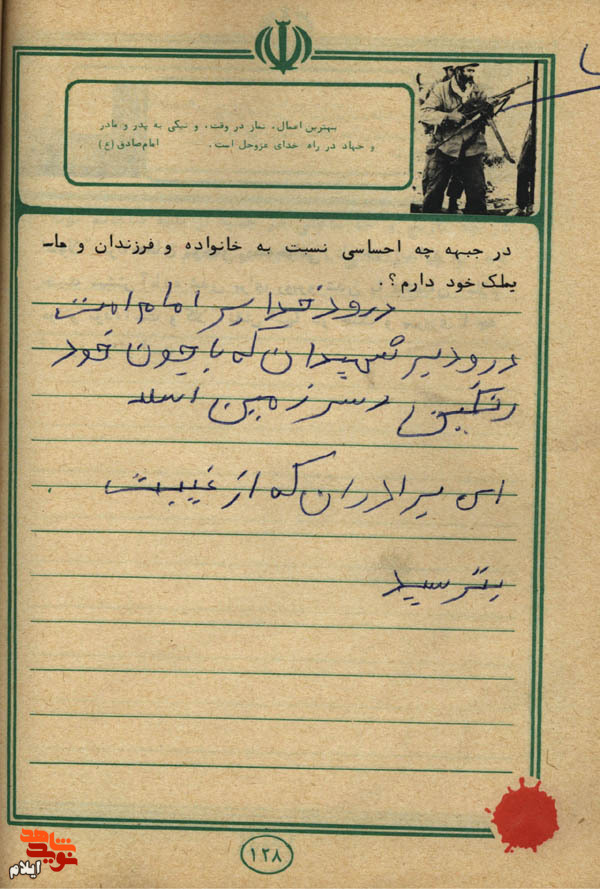 بهترین اعمال، نماز در وقت، و نیکی به پدر و مادر
و جهاد در راه خدای عزوجل است. امام صادق (ع)
در جبهه چه احساسی نسبت به خانواده و فرزندان و ما‌-
یملک خود دارم؟.
درود خدا بر امام امت
درود بر شهیدان که با خون خود
رنگین سرزمین اسلا
ای برادران که از غیبت
بترسید
۱۲۸
نوید شاهد
ایلام